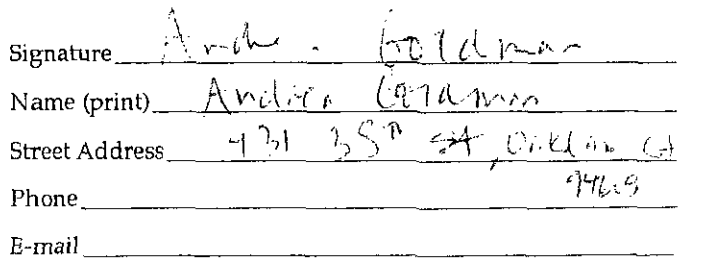 Signature Andrea Goldman
Name (print) Andrea Goldman
Street Address 431 35th St, Oakland CA
94609
Phone
E-mail